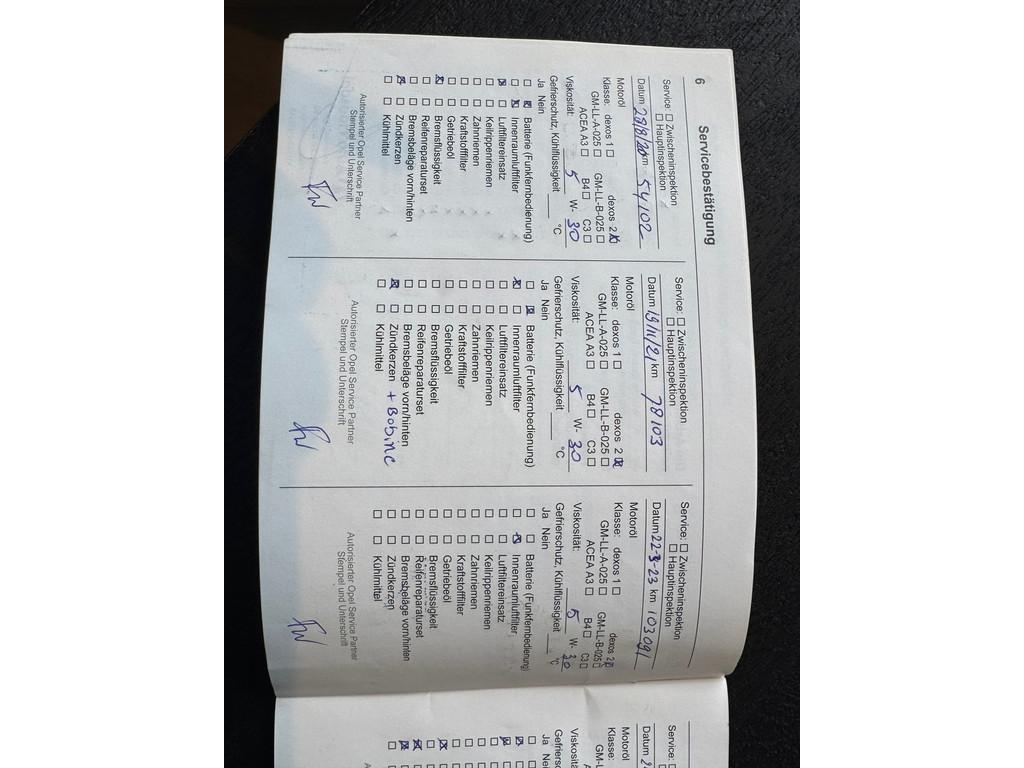 6
Servicebestätigung
Service: ☐ Zwischeninspektion
☐ Hauptinspektion
Datum 27/8/20 km 54102
Motoröl
Klasse: dexos 1 ☐ dexos 2 ☒
GM-LL-A-025 ☐ GM-LL-B-025 ☐
ACEA A3 ☐ B4 ☐ C3 ☐
Viskosität: 5 W- 30
Gefrierschutz, Kühlflüssigkeit ____ °C
Ja Nein
☐ ☒ Batterie (Funkfernbedienung)
☐ ☒ Innenraumluftfilter
☒ ☐ Luftfiltereinsatz
☐ ☐ Keilrippenriemen
☐ ☐ Zahnriemen
☐ ☐ Kraftstofffilter
☐ ☐ Getriebeöl
☒ ☐ Bremsflüssigkeit
☐ ☐ Reifenreparaturset
☐ ☐ Bremsbeläge vorn/hinten
☒ ☐ Zündkerzen
☐ ☐ Kühlmittel
Autorisierter Opel Service Partner
Stempel und Unterschrift
Service: ☐ Zwischeninspektion
☐ Hauptinspektion
Datum 19/11/21 km 78103
Motoröl
Klasse: dexos 1 ☐ dexos 2 ☒
GM-LL-A-025 ☐ GM-LL-B-025 ☐
ACEA A3 ☐ B4 ☐ C3 ☐
Viskosität: 5 W- 30
Gefrierschutz, Kühlflüssigkeit ____ °C
Ja Nein
☐ ☒ Batterie (Funkfernbedienung)
☒ ☐ Innenraumluftfilter
☐ ☐ Luftfiltereinsatz
☐ ☐ Keilrippenriemen
☐ ☐ Zahnriemen
☐ ☐ Kraftstofffilter
☐ ☐ Getriebeöl
☐ ☐ Bremsflüssigkeit
☐ ☐ Reifenreparaturset
☐ ☐ Bremsbeläge vorn/hinten
☒ ☐ Zündkerzen + Bobine
☐ ☐ Kühlmittel
Autorisierter Opel Service Partner
Stempel und Unterschrift
Service: ☐ Zwischeninspektion
☐ Hauptinspektion
Datum 22-3-23 km 103091
Motoröl
Klasse: dexos 1 ☐ dexos 2 ☒
GM-LL-A-025 ☐ GM-LL-B-025 ☐
ACEA A3 ☐ B4 ☐ C3 ☐
Viskosität: 5 W- 30
Gefrierschutz, Kühlflüssigkeit ____ °C
Ja Nein
☐ ☐ Batterie (Funkfernbedienung)
☐ ☒ Innenraumluftfilter
☐ ☐ Luftfiltereinsatz
☐ ☐ Keilrippenriemen
☐ ☐ Zahnriemen
☐ ☐ Kraftstofffilter
☐ ☐ Getriebeöl
☐ ☐ Bremsflüssigkeit
☐ ☐ Reifenreparaturset
☐ ☐ Bremsbeläge vorn/hinten
☐ ☐ Zündkerzen
☐ ☐ Kühlmittel
Autorisierter Opel Service Partner
Stempel und Unterschrift
Service: ☐
Datum
Motoröl
Klasse:
Viskosität:
Ja Nein